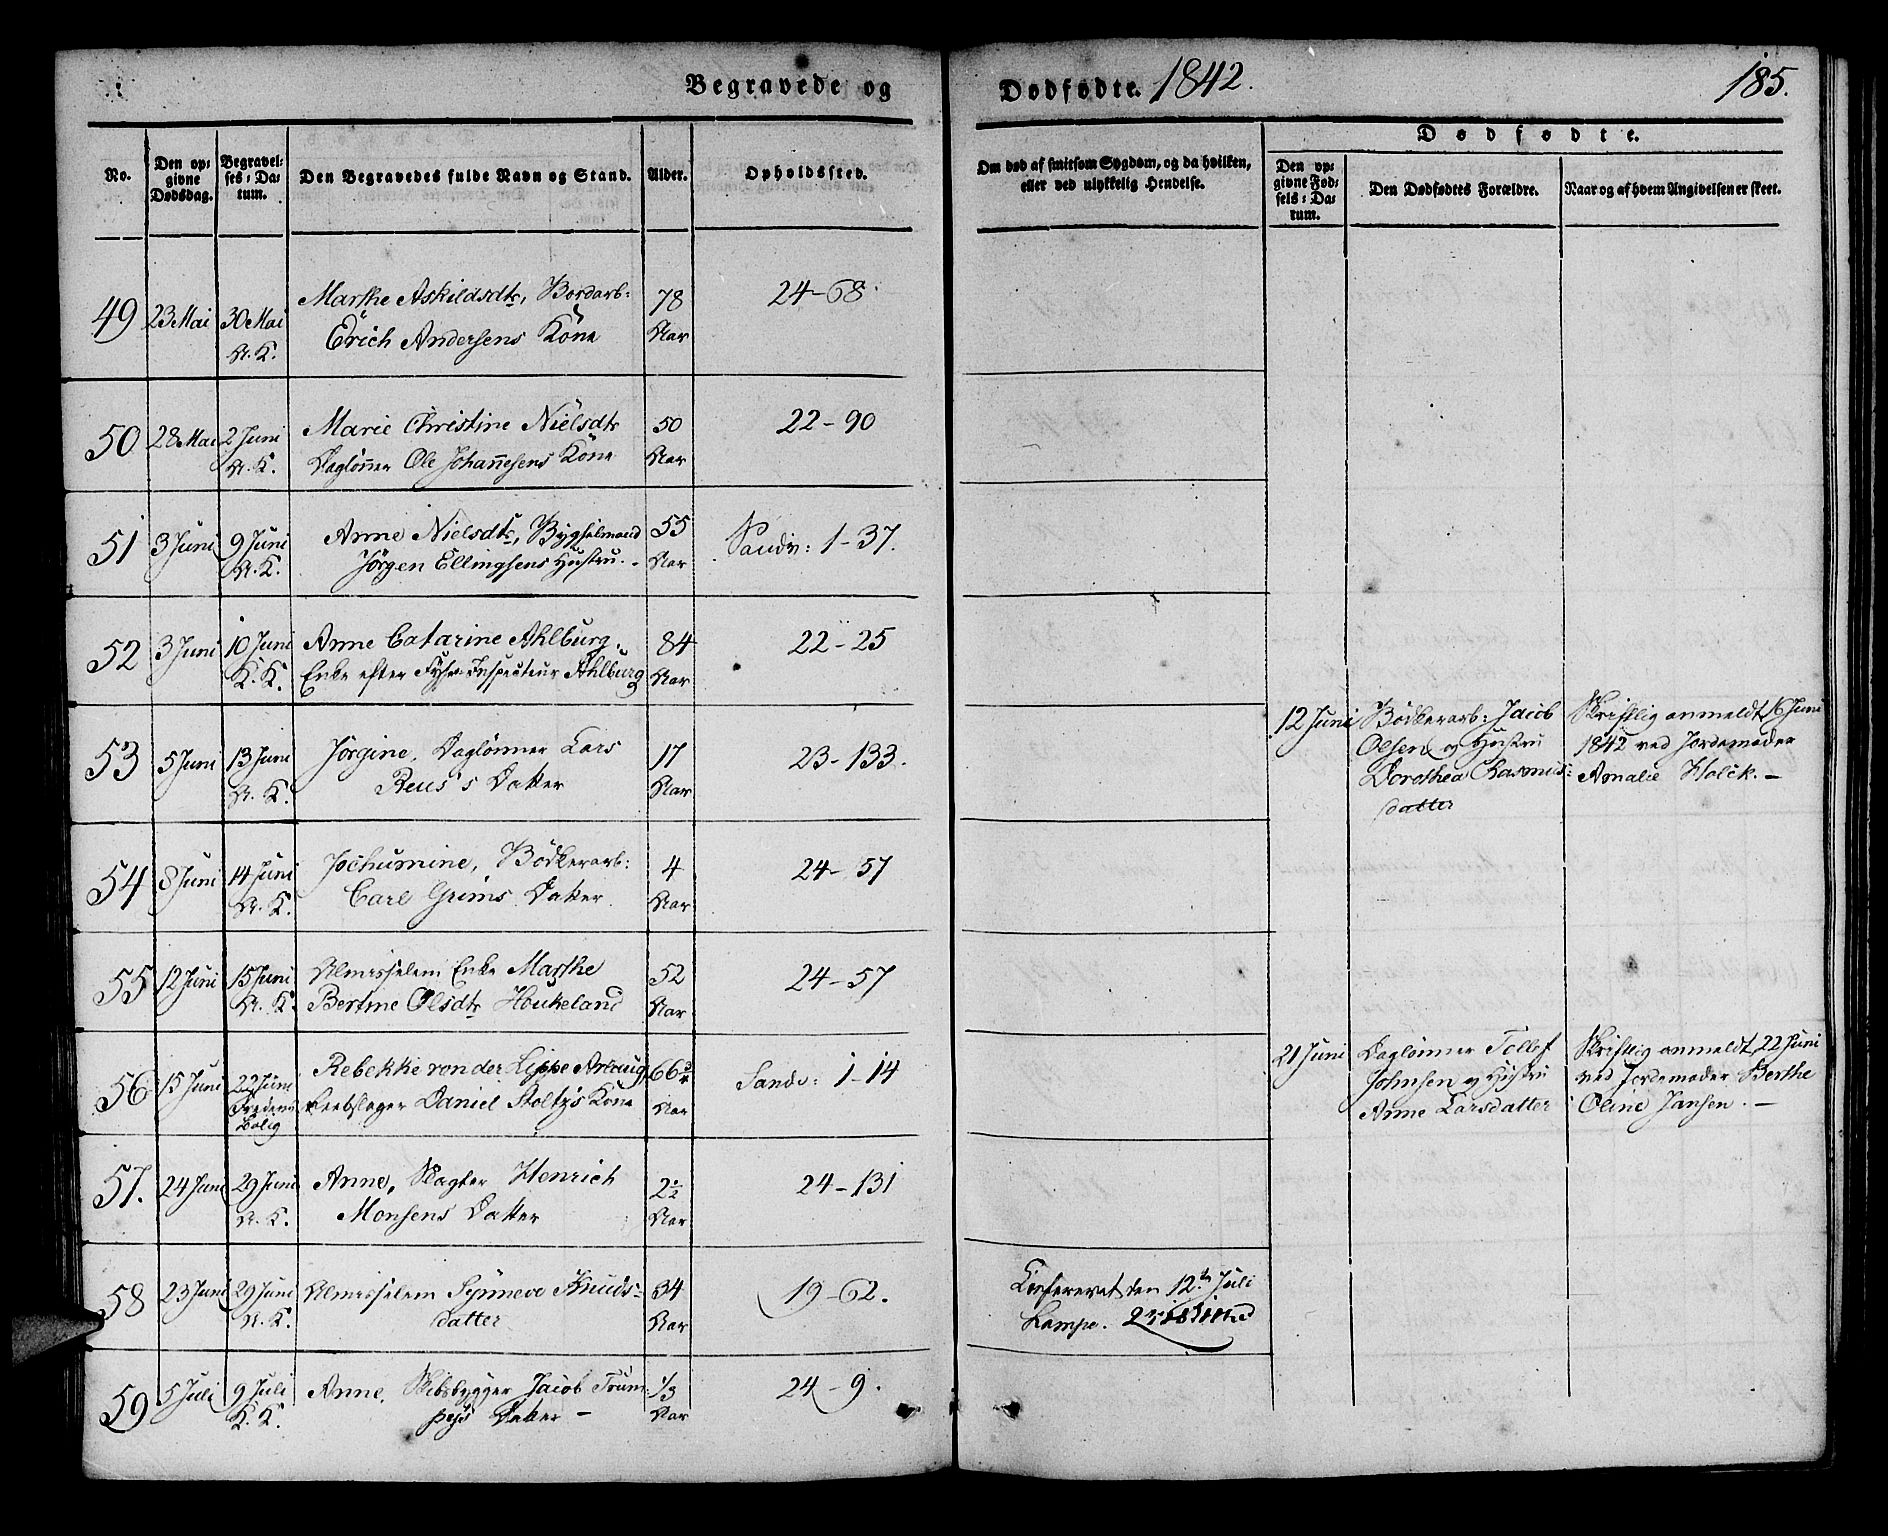 Begravede og Dødfødte. 1842. 185.
No.
Den opgivne Dødsdag.
Begravelses-Datum.
Den Begravedes fulde Navn og Stand.
Alder.
Opholdssted.
Om død af smitsom Sygdom, og da hvilken, eller ved ulykkelig Hendelse.
Dødfødte.
Den opgivne Fødsels-Datum.
Den Dødfødtes Forældre.
Naar og af hvem Angivelsen er skeet.
49 23 Mai 30 Mai Marthe Askildsdtr, Bordarb: 78 24-68.
A. K. Erich Andersens Kone Aar
50 28 Mai 2 Juni Marie Christine Nielsdtr 50 22-90
A. K. Dagløner Ole Johannesens Kone Aar
51 3 Juni 9 Juni Anne Nielsdtr, Bygselmand 55 Sandv: 1-37.
A. K. Jørgen Ellingsens Hustru. Aar
52 3 Juni 10 Juni Anne Catarine Ahlburg. 84 22-25
K. K. Enke efter Inspecteur Ahlburg Aar
53 5 Juni 13 Juni Jørgine, Daglønner Lars 17 23-133.
A. K. Reus's Datter Aar
12 Juni Bødkerarb: Jacob Skriftlig anmeldt 16 Juni
Olsen og Hustru 1842 ved Jordemoder
Dorothea Rasmus- Amalie Holck. —
datter
54 8 Juni 14 Juni Jochumine, Bødkerarb: 4 24-57
A. K. Carl Grims Datter. Aar
55 12 Juni 15 Juni Almisselem Enke Marthe 52 24-57
A. K. Bertine Olsdtr Houkeland Aar
56 15 Juni 22 Juni Rebekke von der Lippe 66 Sandv: 1-14
Fredens Bolig Reebslager Daniel Stoltz's Kone Aar
21 Juni Daglønner Tollef Skriftlig anmeldt 22 Juni
Johnsen og Hustru ved Jordemoder Berthe
Anne Larsdatter Oline Jansen. —
57. 24 Juni 29 Juni Anne, Slagter Henrich 2½ 24-131
A. K. Monsens Datter Aar
58 23 Juni 29 Juni Almisselem Synneve Knuds- 34 19-62.
A. K. datter Aar
Confereret den 12te Juli
Lampe.
59 5 Juli 9 Juli Anne, Skibsbygger Jacob Trum- 1/3 24-9.
K. K. pys Datter — Aar